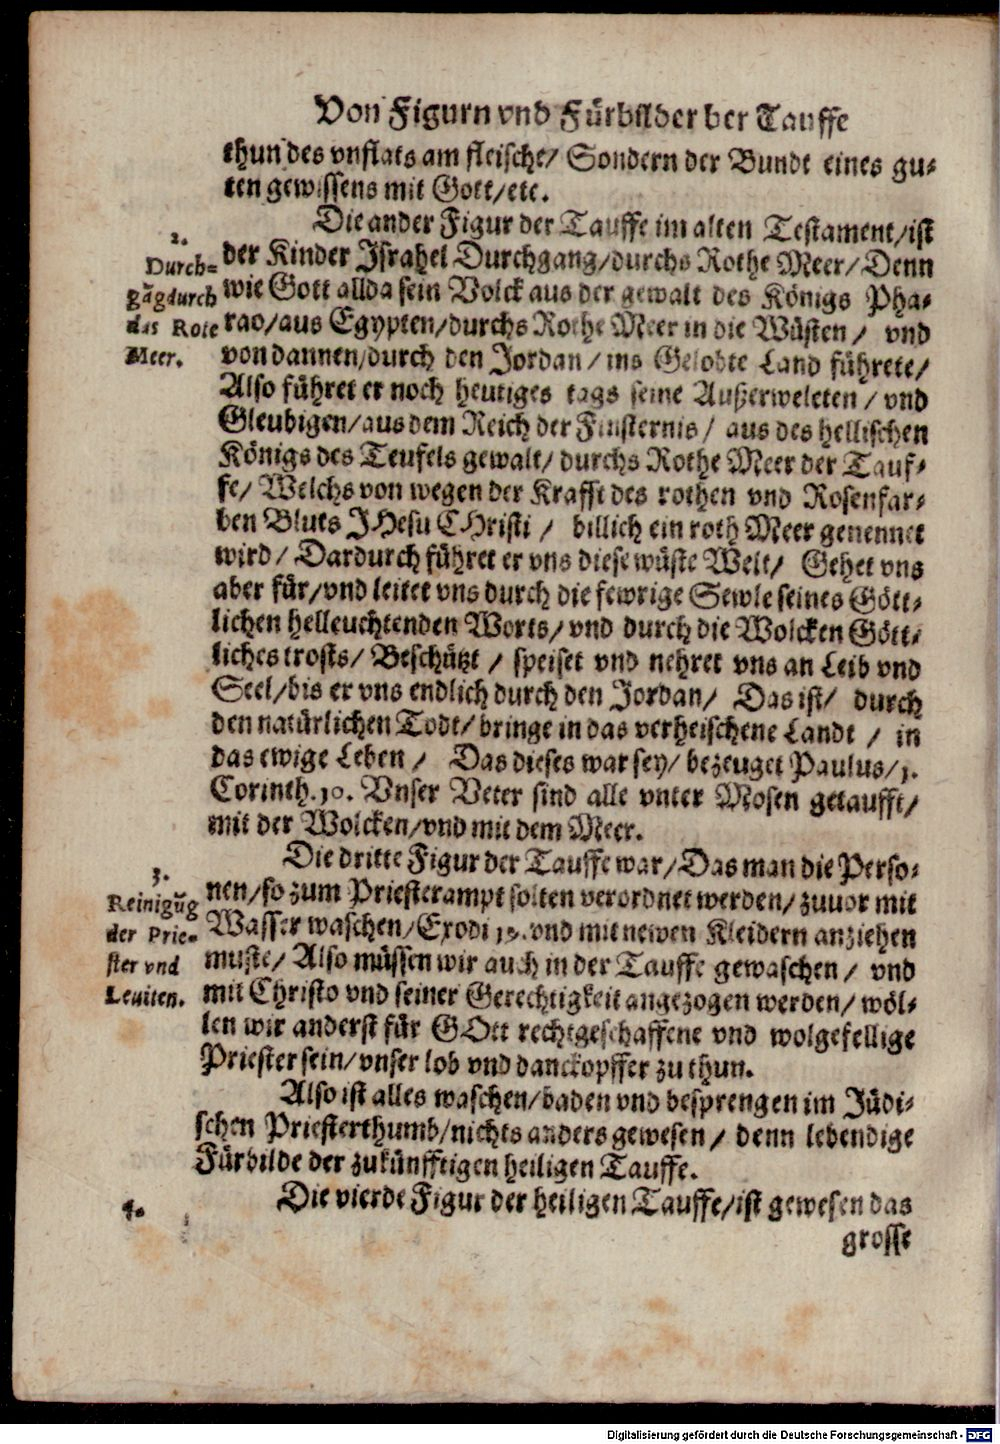 Von Figurn vnd Fürbilder der Tauffe
thun des vnflats am fleische/ Sondern der Bundt eines gu-
ten gewissens mit Gott/etc.
Die ander Figur der Tauffe im alten Testament/ist
2.
Durch-
gāgdurch
das Rote
Meer.
der Kinder Jsrahel Durchgang/durchs Rothe Meer/Denn
wie Gott allda sein Volck aus der gewalt des Königs Pha-
rao/aus Egypten/durchs Rothe Meer in die Wüsten/ vnd
von dannen/durch den Jordan/ins Gelobte Land führete/
Also führet er noch heutiges tags seine Außerweleten/vnd
Gleubigen/aus dem Reich der Finsternis/ aus des hellischen
Königs des Teufels gewalt/durchs Rothe Meer der Tauf-
fe/ Welchs von wegen der Krafft des rothen vnd Rosenfar-
ben Bluts JHesu CHristi/ billich ein roth Meer genennet
wird/ Dardurch führet er vns diese wüste Welt/ Gehet vns
aber für/vnd leitet vns durch die fewrige Sewle seines Gött-
lichen helleuchtenden Worts/vnd durch die Wolcken Gött-
liches trosts/ Beschützt/ speiset vnd nehret vns an Leib vnd
Seel/bis er vns endlich durch den Jordan/ Das ist/ durch
den natürlichen Todt/bringe in das verheischene Landt/ in
das ewige Leben/ Das dieses war sey/ bezeuget Paulus/1.
Corinth.10. Vnser Veter sind alle vnter Mosen getaufft/
mit der Wolcken/vnd mit dem Meer.
Die dritte Figur der Tauffe war/Das man die Perso-
3.
Reinigūg
der Prie-
ster vnd
Leuiten.
nen/so zum Priesterampt solten verordnet werden/zuuor mit
Wasser waschen/Exodi 19.vnd mit newen Kleidern anziehen
muste/ Also müssen wir auch in der Tauffe gewaschen/ vnd
mit Christo vnd seiner Gerechtigkeit angezogen werden/wöl-
len wir anderst für GOtt rechtgeschaffene vnd wolgefellige
Priester sein/vnser lob vnd danckopffer zu thun.
Also ist alles waschen/baden vnd besprengen im Jüdi-
schen Priesterthumb/nichts anders gewesen/ denn lebendige
Fürbilde der zukünfftigen heiligen Tauffe.
4.
Die vierde Figur der heiligen Tauffe/ist gewesen das
grosse
Digitalisierung gefördert durch die Deutsche Forschungsgemeinschaft - DFG